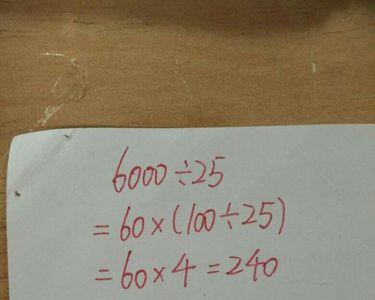 6000÷25
=60×(100÷25)
=60×4=240